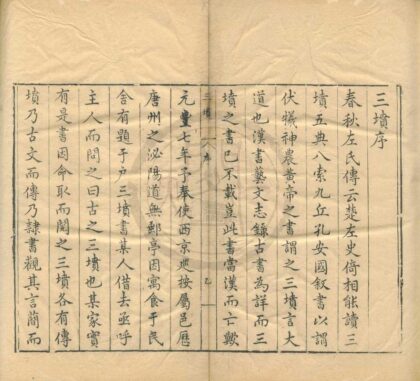 三墳序
春秋左氏傳云楚左史倚相能讀三
墳五典八索九丘孔安國叙書以謂
伏犧神農黄帝之書謂之三墳言大
道也漢書藝文志錄古書為詳而三
墳之書已不載豈此書當漢而亡歟
三墳 序
元豐七年予奉使西京巡按屬邑歷
唐州之泌陽道無郵亭因寓食于民
舍有題于戸三墳書某人借去亟呼
主人而問之曰古之三墳也某家實
有是書因命取而閲之三墳各有傳
墳乃古文而傳乃隸書觀其言簡而